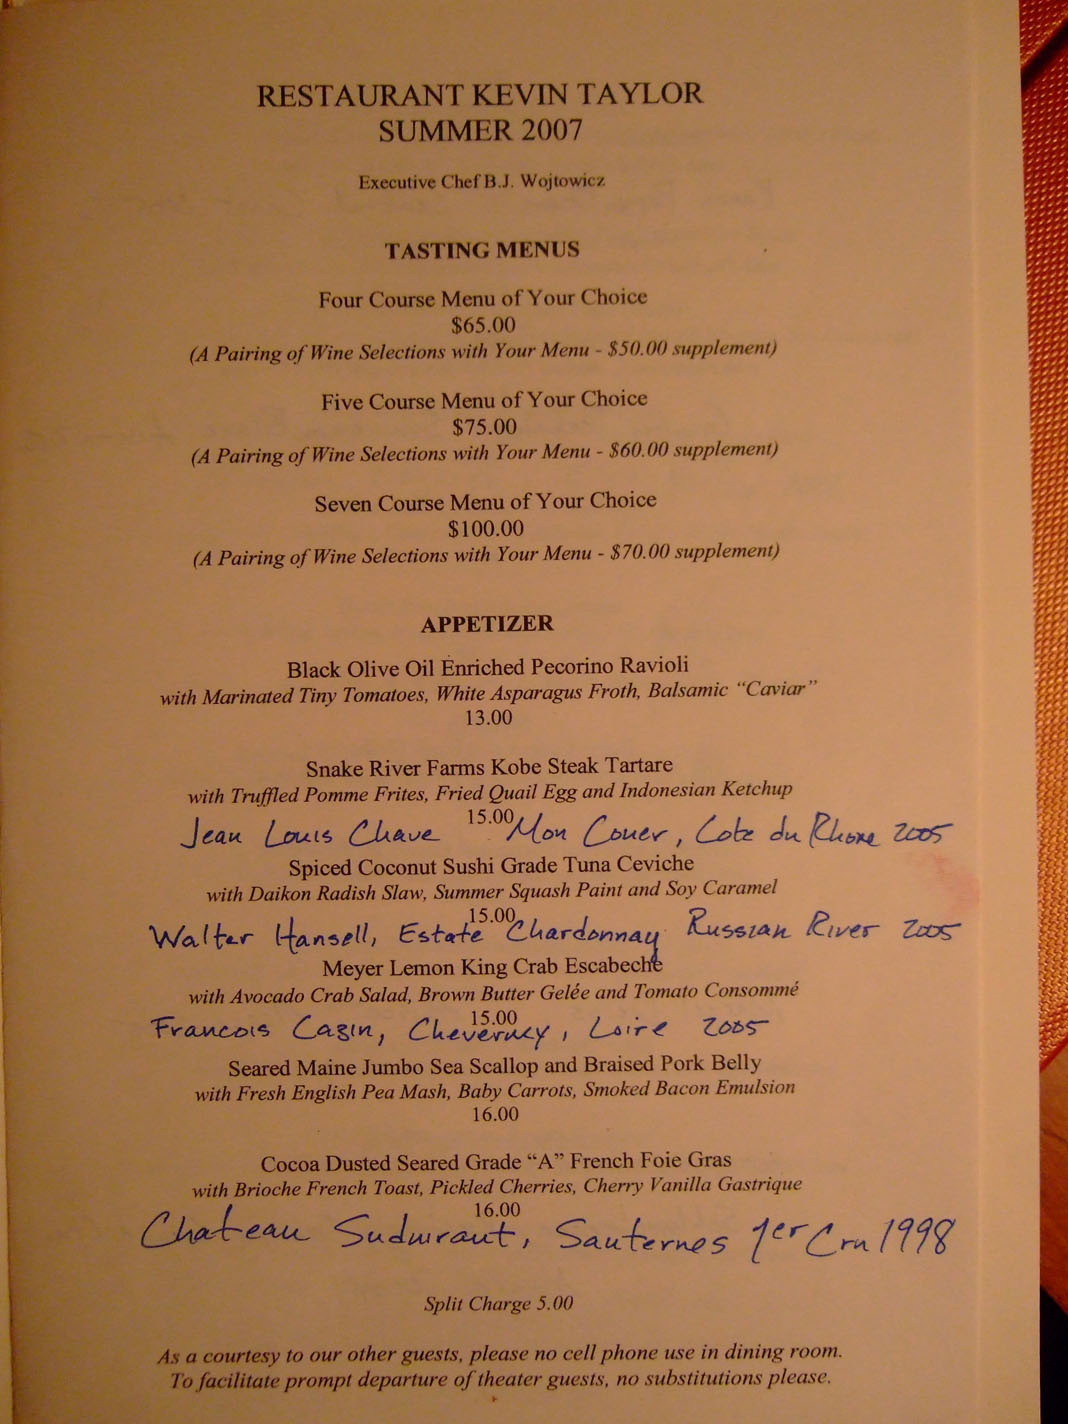 RESTAURANT KEVIN TAYLOR
SUMMER 2007
Executive Chef B.J. Wojtowicz
TASTING MENUS
Four Course Menu of Your Choice
$65.00
(A Pairing of Wine Selections with Your Menu - $50.00 supplement)
Five Course Menu of Your Choice
$75.00
(A Pairing of Wine Selections with Your Menu - $60.00 supplement)
Seven Course Menu of Your Choice
$100.00
(A Pairing of Wine Selections with Your Menu - $70.00 supplement)
APPETIZER
Black Olive Oil Enriched Pecorino Ravioli
with Marinated Tiny Tomatoes, White Asparagus Froth, Balsamic “Caviar”
13.00
Snake River Farms Kobe Steak Tartare
with Truffled Pomme Frites, Fried Quail Egg and Indonesian Ketchup
15.00
Jean Louis Chave Mon Couer, Cote du Rhone 2005
Spiced Coconut Sushi Grade Tuna Ceviche
with Daikon Radish Slaw, Summer Squash Paint and Soy Caramel
15.00
Walter Hansell, Estate Chardonnay Russian River 2005
Meyer Lemon King Crab Escabeche
with Avocado Crab Salad, Brown Butter Gelée and Tomato Consommé
15.00
Francois Cazin, Cheverney, Loire 2005
Seared Maine Jumbo Sea Scallop and Braised Pork Belly
with Fresh English Pea Mash, Baby Carrots, Smoked Bacon Emulsion
16.00
Cocoa Dusted Seared Grade “A” French Foie Gras
with Brioche French Toast, Pickled Cherries, Cherry Vanilla Gastrique
16.00
Chateau Suduiraut, Sauternes 1er Cru 1998
Split Charge 5.00
As a courtesy to our other guests, please no cell phone use in dining room.
To facilitate prompt departure of theater guests, no substitutions please.